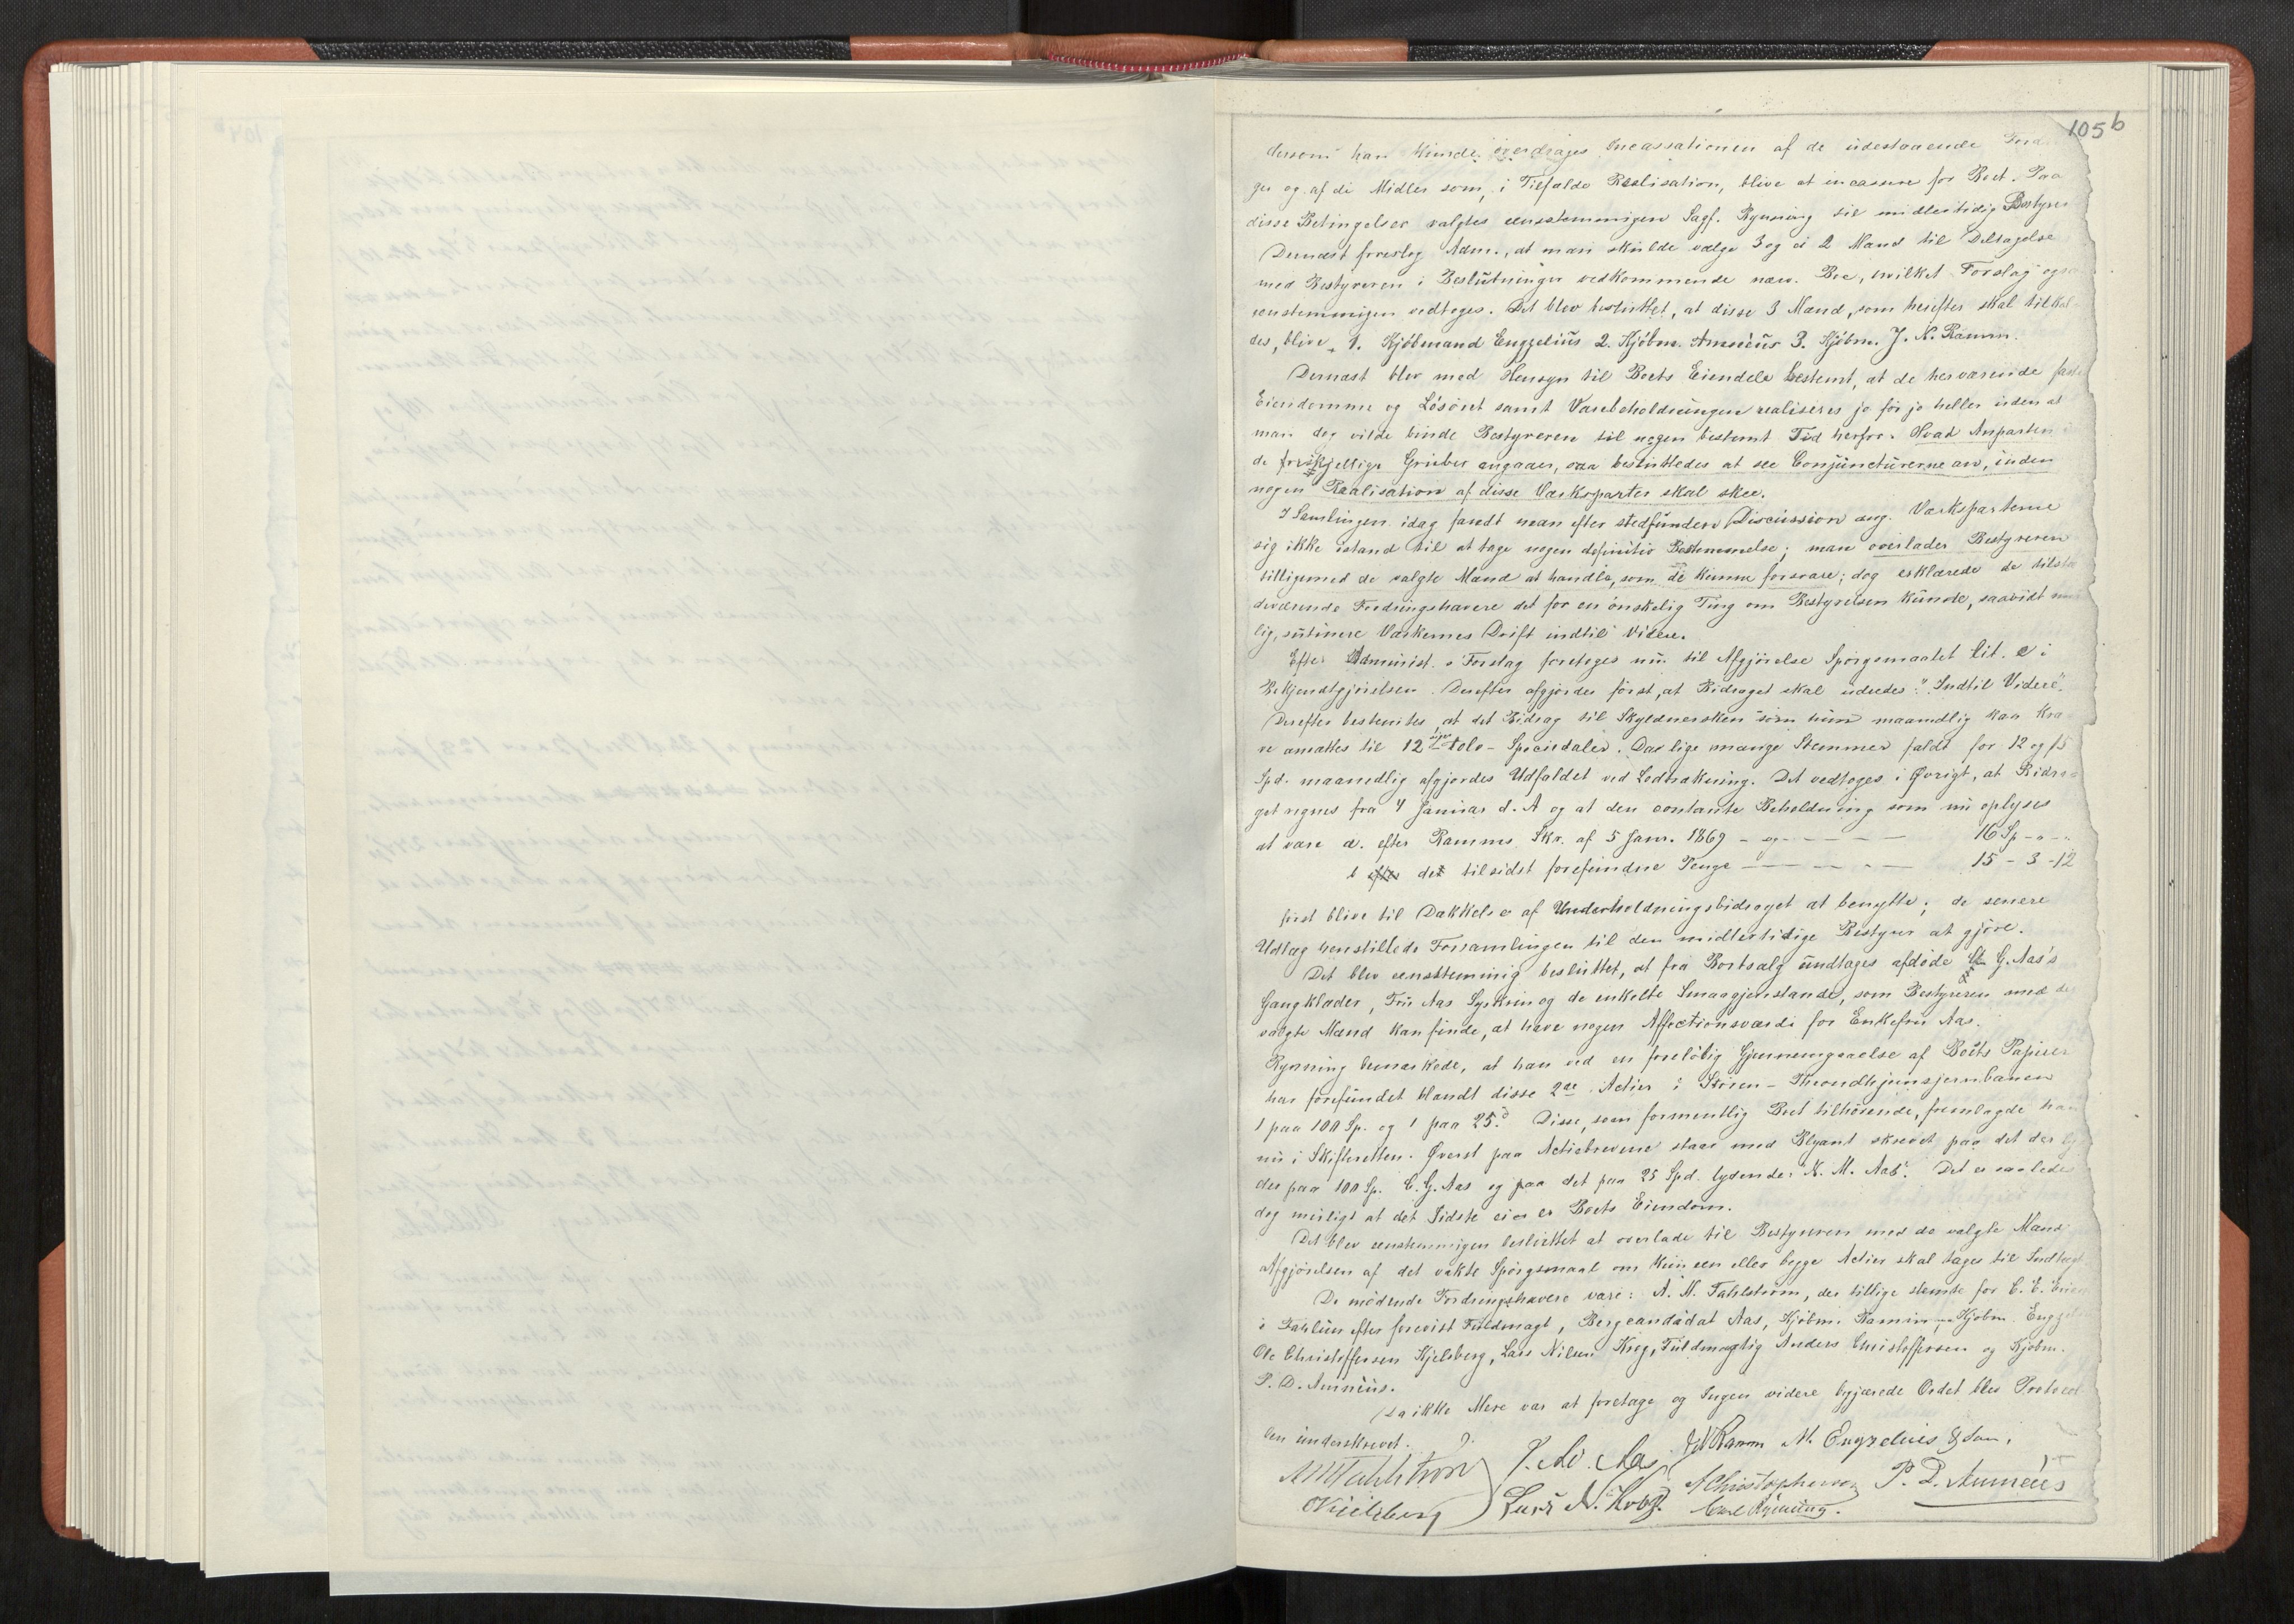 105 b
dersom han kunde overdrages Incassationen af de udestaaende
ger og af de Midler som, i Tilfælde Realisation, blive at incassere for Boet. Paa
disse Betingelser valgtes eenstemmigen Sagf. Rynning til midlertidig Bestyrer
Dernæst foreslog Adm., at man skulde vælge 3 og ei 2 Mænd til Deltagelse
med Bestyreren i Beslutninger vedkommende nærv. Boe, hvilket Forslag ogsa
eenstemmigen vedtoges. Det blev besluttet, at disse 3 Mænd, som herefter skal tilkal
des, blive, 1. Kjøbmand Engzelius 2. Kjøbm. Amnéus 3. Kjøbm. J. N. Ramm.
Dernæst blev med Hensyn til Boets Eiendele bestemt, at de herværende faste
Eiendomme og Løsøret samt Varebeholdningen realiseres jo før jo heller uden at
man dog vilde binde Bestyreren til nogen bestemt Tid herfor. Hvad Anparten i
de forskjellige Gruber angaaer, saa besluttedes at see Conjuncturerne an, inden
nogen Realisation af disse Værksparter skal skee.
I Samlingen idag fandt man efter stedfunden Discussion ang. Værksparterne
sig ikke istand til at tage nogen definitiv Bestemmelse; man overlader Bestyreren
tilligemed de valgte Mænd at handle, som de kunne forsvare; dog erklærede de tilste
deværende Fordringshavere det for en ønskelig Ting om Bestyrelsen kunde, saavidt mu
lig, sutinere Værkernes Drift indtil Videre.
Efter Administ. s Forslag foretoges nu til Afgjørelse Spørgsmaalet lit. c i
Bekjendtgjørelsen. Derefter afgjordes først, at Bidraget skal udredes "Indtil Videre".
Derefter bestemtes, at det Bidrag til Skyldnersken som hun maanedlig kan kræ
ve ansættes til 12 tolv - Speciedaler. Da lige mange Stemmer faldt for 12 og 15
Spd. maanedlig afgjordes Udfaldet ved Lodtrækning. Det vedtoges i Øvrigt, at Bidra
get regnes fra 4 Januar d. A og at den contante Beholdning som nu oplyses
at være a. efter Ramms Skr. af 5 Janr. 1869 - og - - - - 16 Sp - " - "
b efter det tilsidst forefundne Penge - - - - 15 - 3 - 12
først blive til Dækkelse af Underholdningsbidraget at benytte; de senere
Udlæg henstillede Forsamlingen til den midlertidige Bestyrer at gjøre.
Det blev eenstemmig besluttet, at fra Bortsalg undtages afdøde G. Aas's
Gangklæder, Fru Aas Syskrin og de enkelte Smaagjenstande, som Bestyreren med de
valgte Mænd kan finde, at have nogen Affectionsværdi for Enkefru Aas.
Rynning bemærkede, at han ved en foreløbig Gjennemgaaelse af Boets Papirer
har forefundet blandt disse 2de Actier i Støren - Throndhjemsjernbanen
1 paa 100 Sp. og 1 paa 25. Disse, som formentlig Boet tilhørende, fremlagde han
nu i Skifteretten. Øverst paa Actiebrevene staar med Blyant skrevet paa det der ly
der paa 100 Sp. C. G. Aas og paa det paa 25 Spd. lydende: "N. M. Aas". Det er saaledes
dog muligt at det Sidste ei er Boets Eiendom.
Det blev eenstemmigen besluttet at overlade til Bestyreren med de valgte Mænd
Afgjørelsen af det vakte Spørgsmaal om kun een eller begge Actier skal tages til Indtægt
De mødende Fordringshavere vare: A. M. Fahlstrøm, der tillige stemte for C. E.
i Fahlun efter forevist Fuldmagt, Bergcandidat Aas, Kjøbm. Ramm, Kjøbm.
Ole Christoffersen Kjelsberg, Lars Nilsen Krog, Fuldmægtig Anders Christoffersen og Kjøbm.
P. D. Amnéus.
Da ikke Mere var at foretage og Ingen videre begjærede Ordet blev Protocol
len underskrevet.
AMFahlstrøm J. M. Aas JNRamm M. Engzelius & Søn.
OKjelsberg Lars N. Krog. AChristophersen P. D. Amnéus
Carl Rynning.